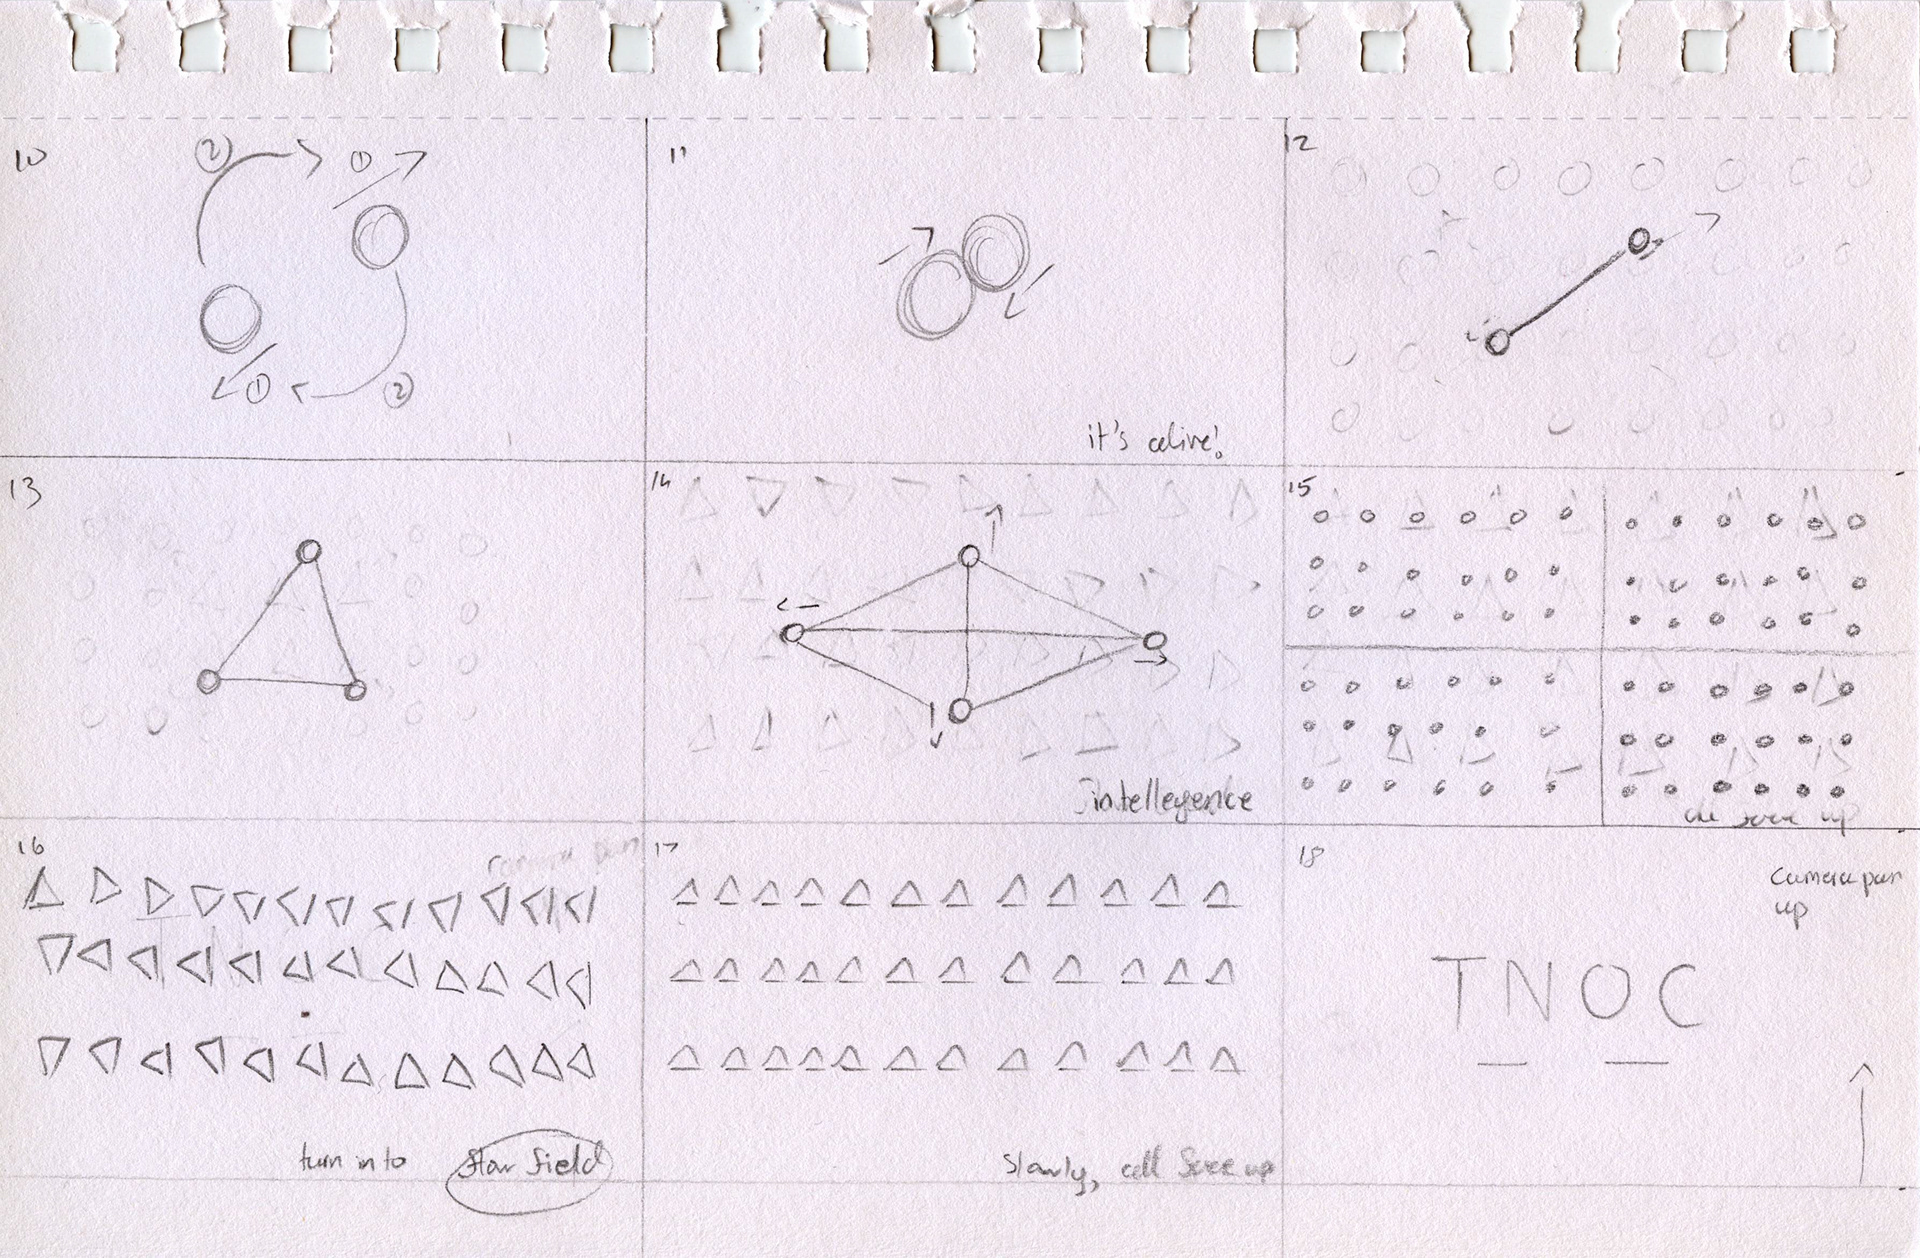 10
②
①
①
②
11
it's alive!
12
13
14
intellegence
15
up
16
camera pan
turn into
Star field
17
Slowly, all face up
18
Camera pan
up
TNOC